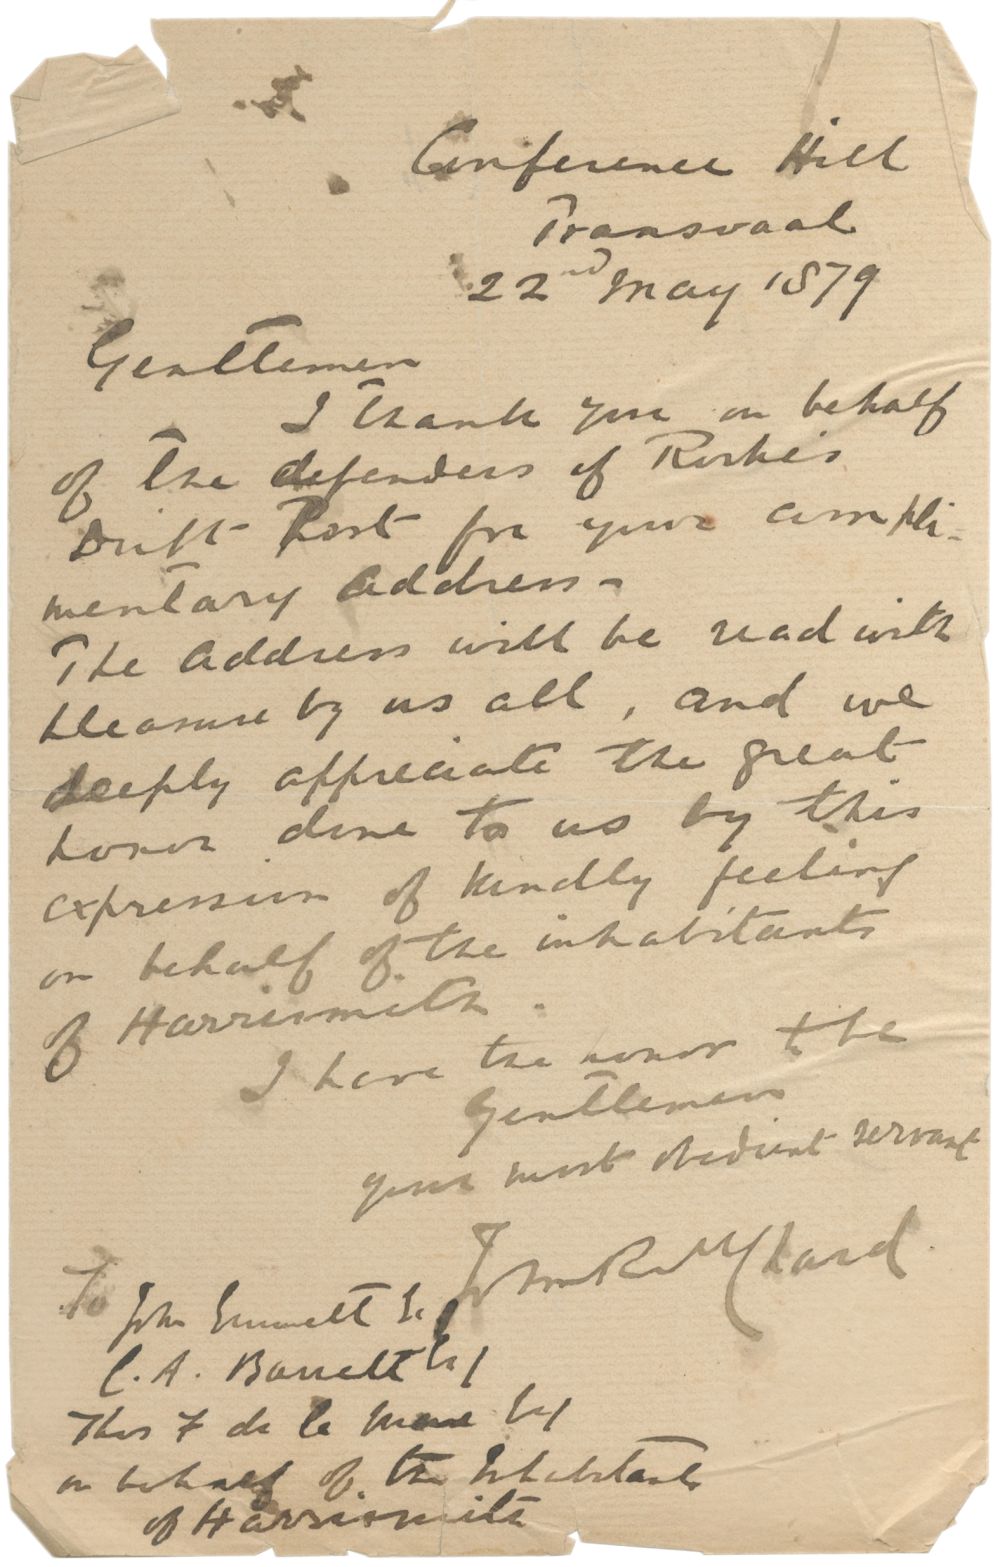 Conference Hill
Transvaal
22nd May 1879
Gentlemen
I thank you on behalf
of the defenders of Rorke's
Drift Post for your compli-
mentary address -
The address will be read with
pleasure by us all, and we
deeply appreciate the great
honor done to us by this
expression of kindly feeling
on behalf of the inhabitants
of Harrismith.
I have the honor to be
Gentlemen
your most obedient servant
John R M Chard
To
John Emmett
C. A. Barrett Esq
Thos F de la Mare Esq
on behalf of the Inhabitants
of Harrismith